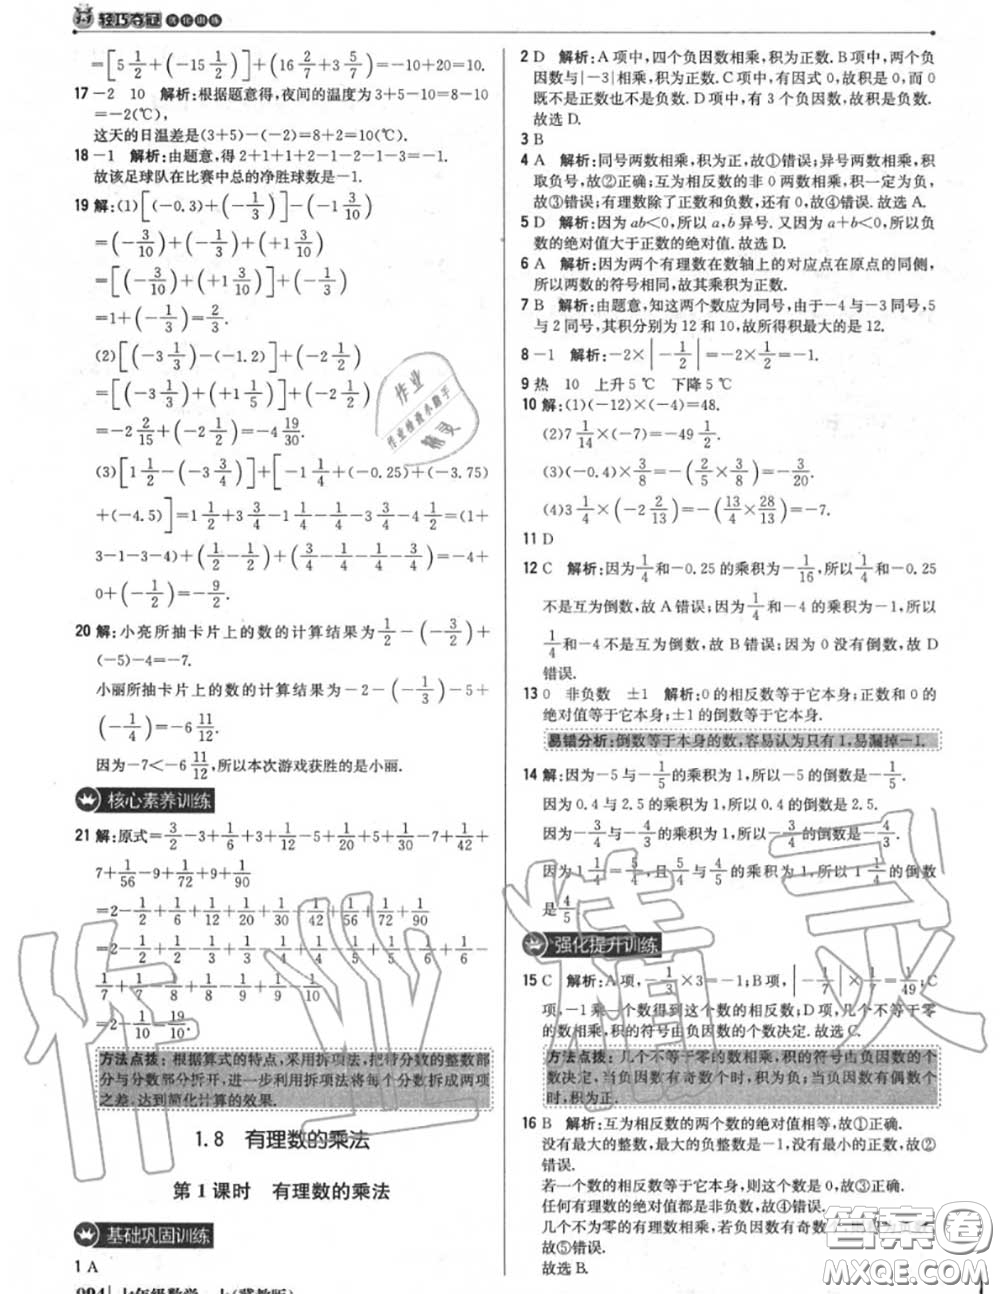 轻巧夺冠 优化训练
=[5 1/2+(-15 1/2)]+(16 2/7+3 5/7)=-10+20=10.
17 -2 10 解析:根据题意得,夜间的温度为3+5-10=8-10
=-2(℃),
这天的日温差是(3+5)-(-2)=8+2=10(℃).
18 -1 解析:由题意,得2+1+1+2-1-1-2-3=-1.
故该足球队在比赛中总的净胜球数是-1.
19 解:(1)[(-0.3)+(-1/3)]-(-1 3/10)
=(-3/10)+(-1/3)+(+1 3/10)
=[(-3/10)+(+1 3/10)]+(-1/3)
=1+(-1/3)=2/3.
(2)[(-3 1/3)-(-1.2)]+(-2 1/2)
=[(-3 1/3)+(+1 1/5)]+(-2 1/2)
=-2 2/15+(-2 1/2)=-4 19/30.
(3)[1 1/2-(-3 3/4)]+[-1 1/4+(-0.25)+(-3.75)
+(-4.5)]=1 1/2+3 3/4-1 1/4-1/4-3 3/4-4 1/2=(1+
3-1-3-4)+(1/2-1/2)+(3/4-1/4-1/4-3/4)=-4+
0+(-1/2)=-9/2.
20 解:小亮所抽卡片上的数的计算结果为1/2-(-3/2)+
(-5)-4=-7.
小丽所抽卡片上的数的计算结果为-7/4-(-1/3)-5+
(-1/4)=-6 11/12.
因为-7<-6 11/12,所以本次游戏获胜的是小丽.
核心素养训练
21 解:原式=3/2-3+1/6+3+1/12-5+1/20+5+1/30-7+1/42+
7+1/56-9+1/72+9+1/90
=2-1/2+1/6+1/12+1/20+1/30+1/42+1/56+1/72+1/90
=2-1/2+1/2-1/3+1/3-1/4+1/4-1/5+1/5-1/6+1/6-
1/7+1/7-1/8+1/8-1/9+1/9-1/10
=2-1/10=19/10.
方法点拨:根据算式的特点,采用拆项法,把带分数的整数部
分与分数部分拆开,进一步利用拆项法将每个分数拆成两项
之差,达到简化计算的效果.
1.8 有理数的乘法
第1课时 有理数的乘法
基础巩固训练
1 A
2 D 解析:A项中,四个负因数相乘,积为正数.B项中,两个负
因数与|-3|相乘,积为正数.C项中,有因式0,故积是0,而0
既不是正数也不是负数.D项中,有3个负因数,故积是负数.
故选D.
3 B
4 A 解析:同号两数相乘,积为正,故①错误;异号两数相乘,积
取负号,故②正确;互为相反数的非0两数相乘,积一定为负,
故③错误;有理数除了正数和负数,还有0,故④错误.故选A.
5 D 解析:因为ab<0,所以a,b异号.又因为a+b<0,所以负
数的绝对值大于正数的绝对值.故选D.
6 A 解析:因为两个有理数在数轴上的对应点在原点的同侧,
所以两数的符号相同,故其乘积为正数.
7 B 解析:由题意,知这两个数应为同号,由于-4与-3同号,5
与2同号,其积分别为12和10,故所得积最大的是12.
8 -1 解析:-2×|-1/2|=-2×1/2=-1.
9 热 10 上升5℃ 下降5℃
10 解:(1)(-12)×(-4)=48.
(2)7 1/14×(-7)=-49 1/2.
(3)(-0.4)×3/8=-(2/5×3/8)=-3/20.
(4)3 1/4×(-2 2/13)=-(13/4×28/13)=-7.
11 D
12 C 解析:因为1/4和-0.25的乘积为-1/16,所以1/4和-0.25
不是互为倒数,故A错误;因为1/4和-4的乘积为-1,所以
1/4和-4不是互为倒数,故B错误;因为0没有倒数,故D
错误.
13 0 非负数 ±1 解析:0的相反数等于它本身;正数和0的
绝对值等于它本身;±1的倒数等于它本身.
易错分析:倒数等于本身的数,容易认为只有1,易漏掉-1.
14 解:因为-5与-1/5的乘积为1,所以-5的倒数是-1/5.
因为0.4与2.5的乘积为1,所以0.4的倒数是2.5.
因为-3/4与-4/3的乘积为1,所以-3/4的倒数是-4/3.
因为1 1/4=5/4,且5/4与4/5的乘积为1,所以1 1/4的倒数
是4/5.
强化提升训练
15 C 解析:A项,-1/3×3=-1;B项,|-1/7|×1/7=1/49;C
项,-1乘一个数得到这个数的相反数;D项,几个不等于零
的数相乘,积的符号由负因数的个数决定.故选C.
方法点拨:几个不等于零的数相乘,积的符号由负因数的个
数决定,当负因数有奇数个时,积为负;当负因数有偶数个
时,积为正.
16 B 解析:互为相反数的两个数的绝对值相等,故①正确.
没有最大的整数,最大的负整数是-1,没有最小的正数,故②
错误.
若一个数的相反数等于它本身,则这个数是0,故③正确.
任何有理数的绝对值都是非负数,故④正确.
几个不为零的有理数相乘,若负因数有奇数
故⑤错误.
故选B.
作业精灵
答案圈
MXQE.COM